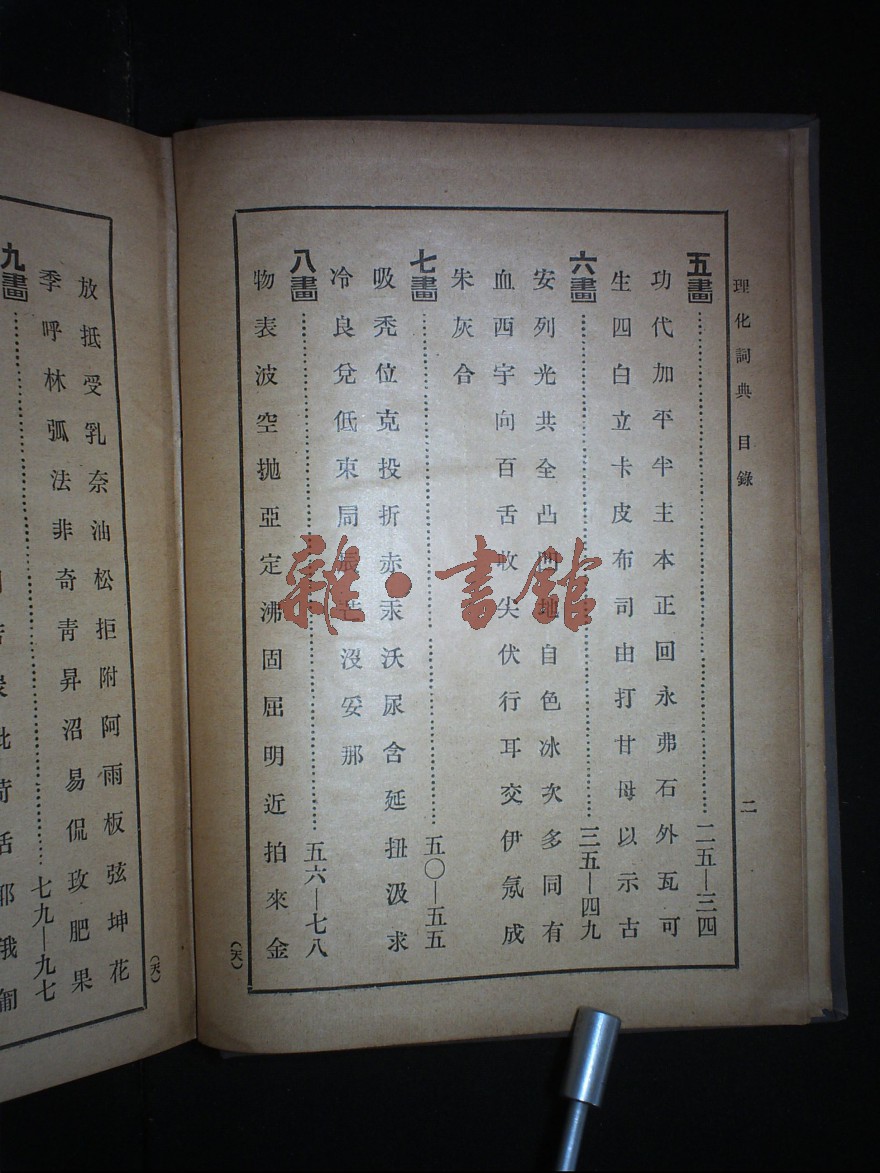 理化詞典 目錄 二
五畫……二五—三四
功代加平半主本正回永弗石外瓦可
生四白立卡皮布司由打甘母以示古
六畫……三五—四九
安列光共全凸凹地自色冰次多同有
血西宇向百舌收尖伏行耳交伊氖成
朱灰合
七畫……五〇—五五
吸禿位克投折赤汞沃尿含延扭汲求
冷良兌低束局辰沒妥那
八畫……五六—七八
物表波空拋亞定沸固屈明近拍來金
(天)
放抵受乳奈油松拒附阿雨板弦坤花
季呼林弧法非奇青昇沼易侃玫肥果
九畫……七九—九七
(天)
雜·書館